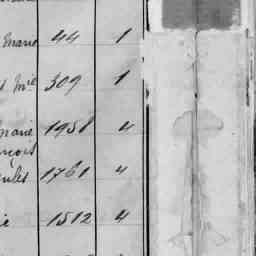 Marie 44 1
Mie 309 1
Marie 1958 4
nçois
ules 1761 4
ie 1512 4